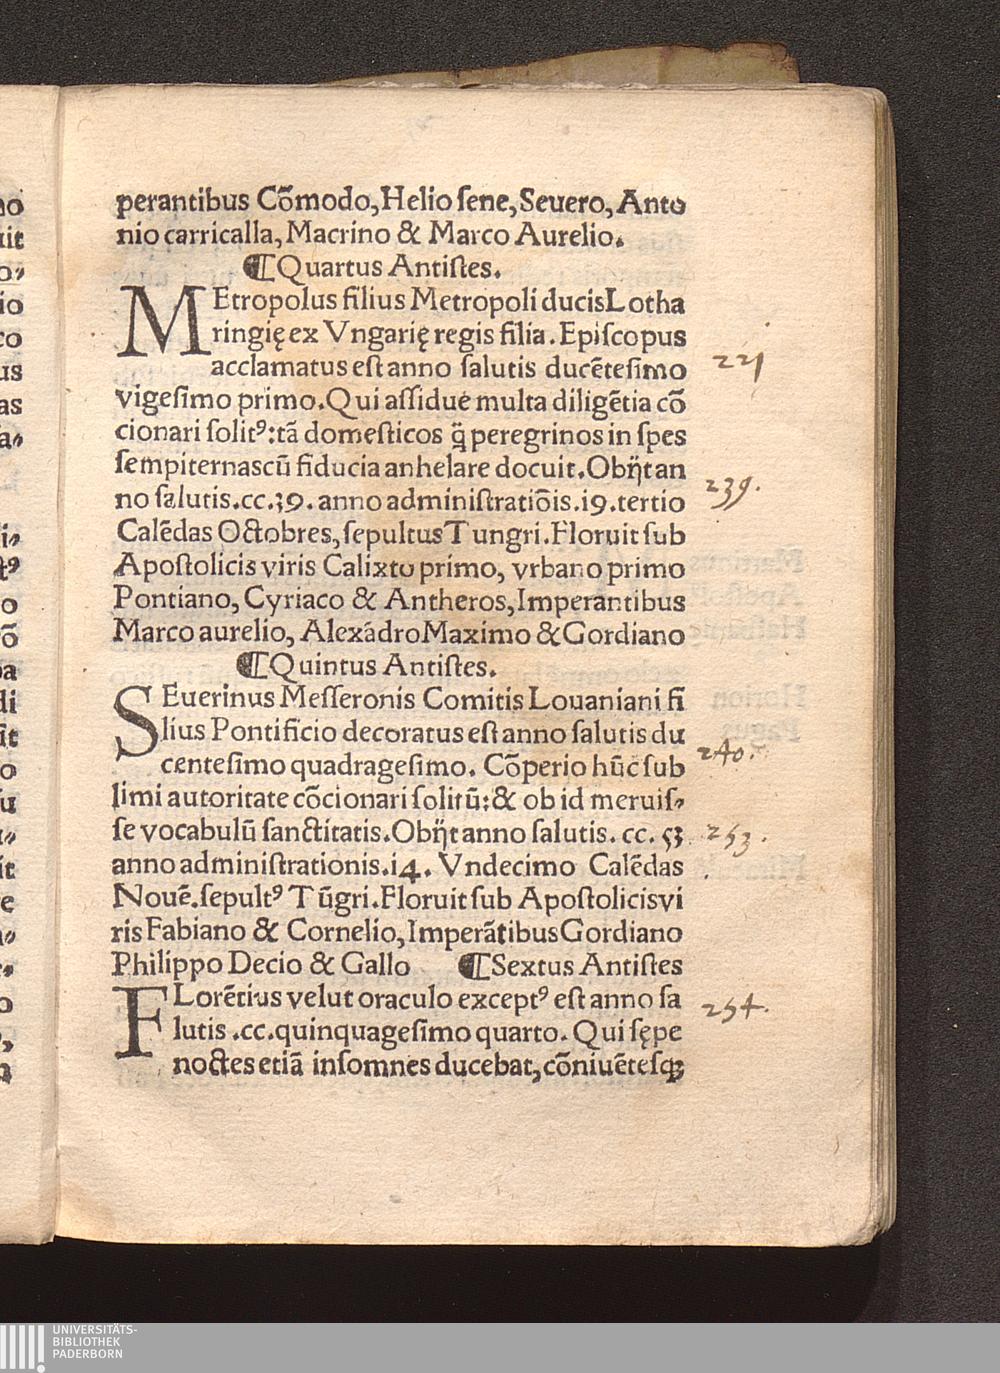 perantibus Cõmodo,Helio ſene,Seuero,Anto
nio carricalla,Macrino & Marco Aurelio.
¶Quartus Antiſtes.
MEtropolus filius Metropoli ducisLotha
ringię ex Vngarię regis filia.Epiſcopus
acclamatus eſt anno ſalutis ducẽteſimo
vigeſimo primo.Qui aſſidue multa diligẽtia cõ
cionari ſolitꝰ:tã domeſticos q̃ peregrinos in ſpes
ſempiternascũ fiducia anhelare docuit.Obijt an
no ſalutis.cc.39.anno adminiſtratiõis.19.tertio
Calẽdas Octobres,ſepultusTungri.Floruit ſub
Apoſtolicis viris Calixto primo,vrbano primo
Pontiano,Cyriaco & Antheros,Imperantibus
Marco aurelio,AlexãdroMaximo &Gordiano
¶Quintus Antiſtes.
SEuerinus Meſſeronis Comitis Louaniani fi
lius Pontificio decoratus eſt anno ſalutis du
centeſimo quadrageſimo. Cõperio hũc ſub
limi autoritate cõcionari ſolitũ:& ob id meruiſ⸗
ſe vocabulũ ſanctitatis.Obijt anno ſalutis.cc.53
anno adminiſtrationis.14. Vndecimo Calẽdas
Nouẽ.ſepultꝰ Tũgri.Floruit ſub Apoſtolicisvi
ris Fabiano & Cornelio,ImperãtibusGordiano
Philippo Decio & Gallo ¶Sextus Antiſtes
FLorẽtius velut oraculo exceptꝰ eſt anno ſa
lutis .cc.quinquageſimo quarto.Qui ſępe
noctes etiã inſomnes ducebat,cõniuẽteſqꝫ
221
239.
240.
253.
254.
UNIVERSITÄTS-
BIBLIOTHEK
PADERBORN